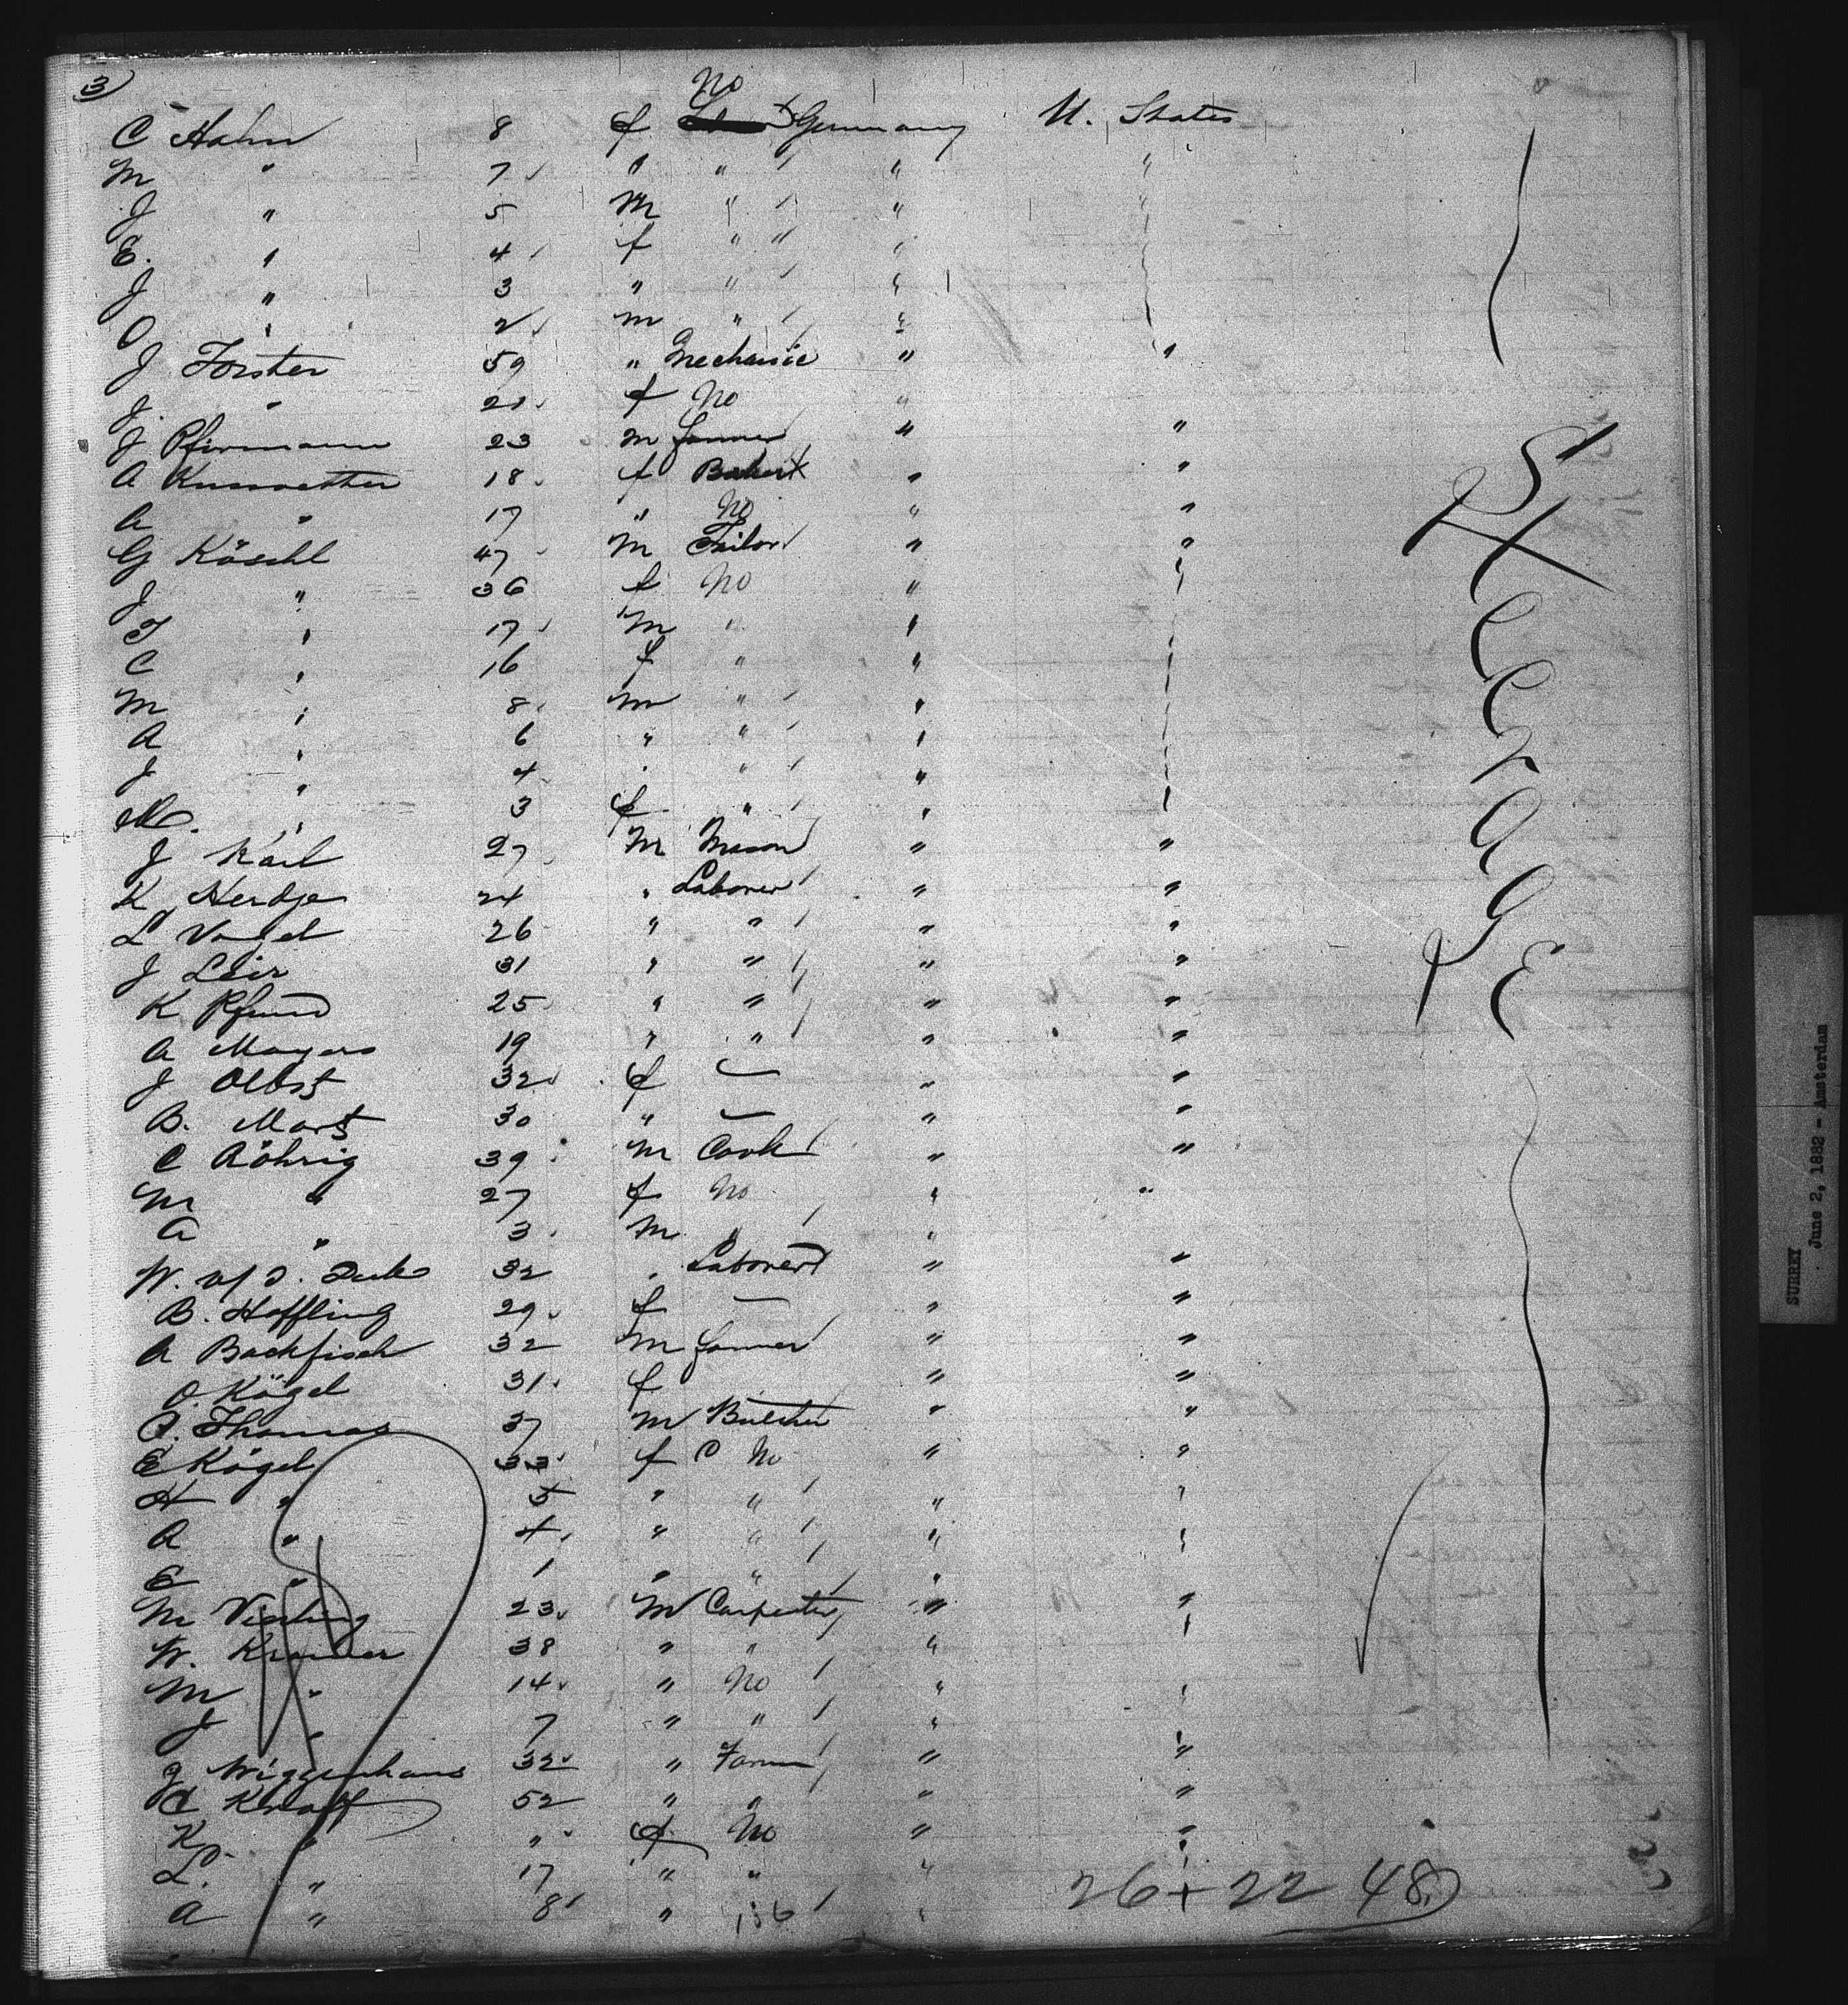 3)
No
C Hahn 8 f Germany U. States
M " 7 " " " "
J " 5 M " " "
E. " 4 f " " "
J " 3 " " "
O " 2 m " "
J Forster 59 " Mechanic " "
J. " 21 f No "
J Pfirmann 23 m farmer " "
A 18 f " "
A " 17 " No " "
G Köschl 47 M Tailor " "
J " 36 f No "
T " 17 M " "
C " 16 f " "
M " 8 m " "
A " 6 " " "
J " 4 " " "
M. " 3 f " "
J Karl 27 M Mason " "
K Herdje 24 " Laborer " "
L Vogel 26 " " " "
J Leir 31 " " " "
K Pfund 25 " " " "
A Mayers 19 " " " "
J 32 f — " "
B. Marß 30 " — " "
C Röhrig 39 M Cook " "
M " 27 f No " "
A " 3 M " "
W. v/d. 32 " Laborer " "
B. Hoffling 29 f — " "
A Backfisch 32 M farmer " "
O. Kögel 31 f " "
P. Thomas 37 M Butcher " "
E Kögel 33 f No " "
H " 5 " " " "
A " 4 " " " "
E " 1 " " "
M 23 M Carpenter " "
W. Kramer 38 " " "
M " 14 " No "
J " 7 " " "
J Wiggenhaus 32 " Farmer " "
C Knaff 52 " " " "
K " " f No " "
L. " 17 " " "
A " 8 " 136 "
26 + 22 48
Steerage
SURREY
June 2, 1882 - Amsterdam